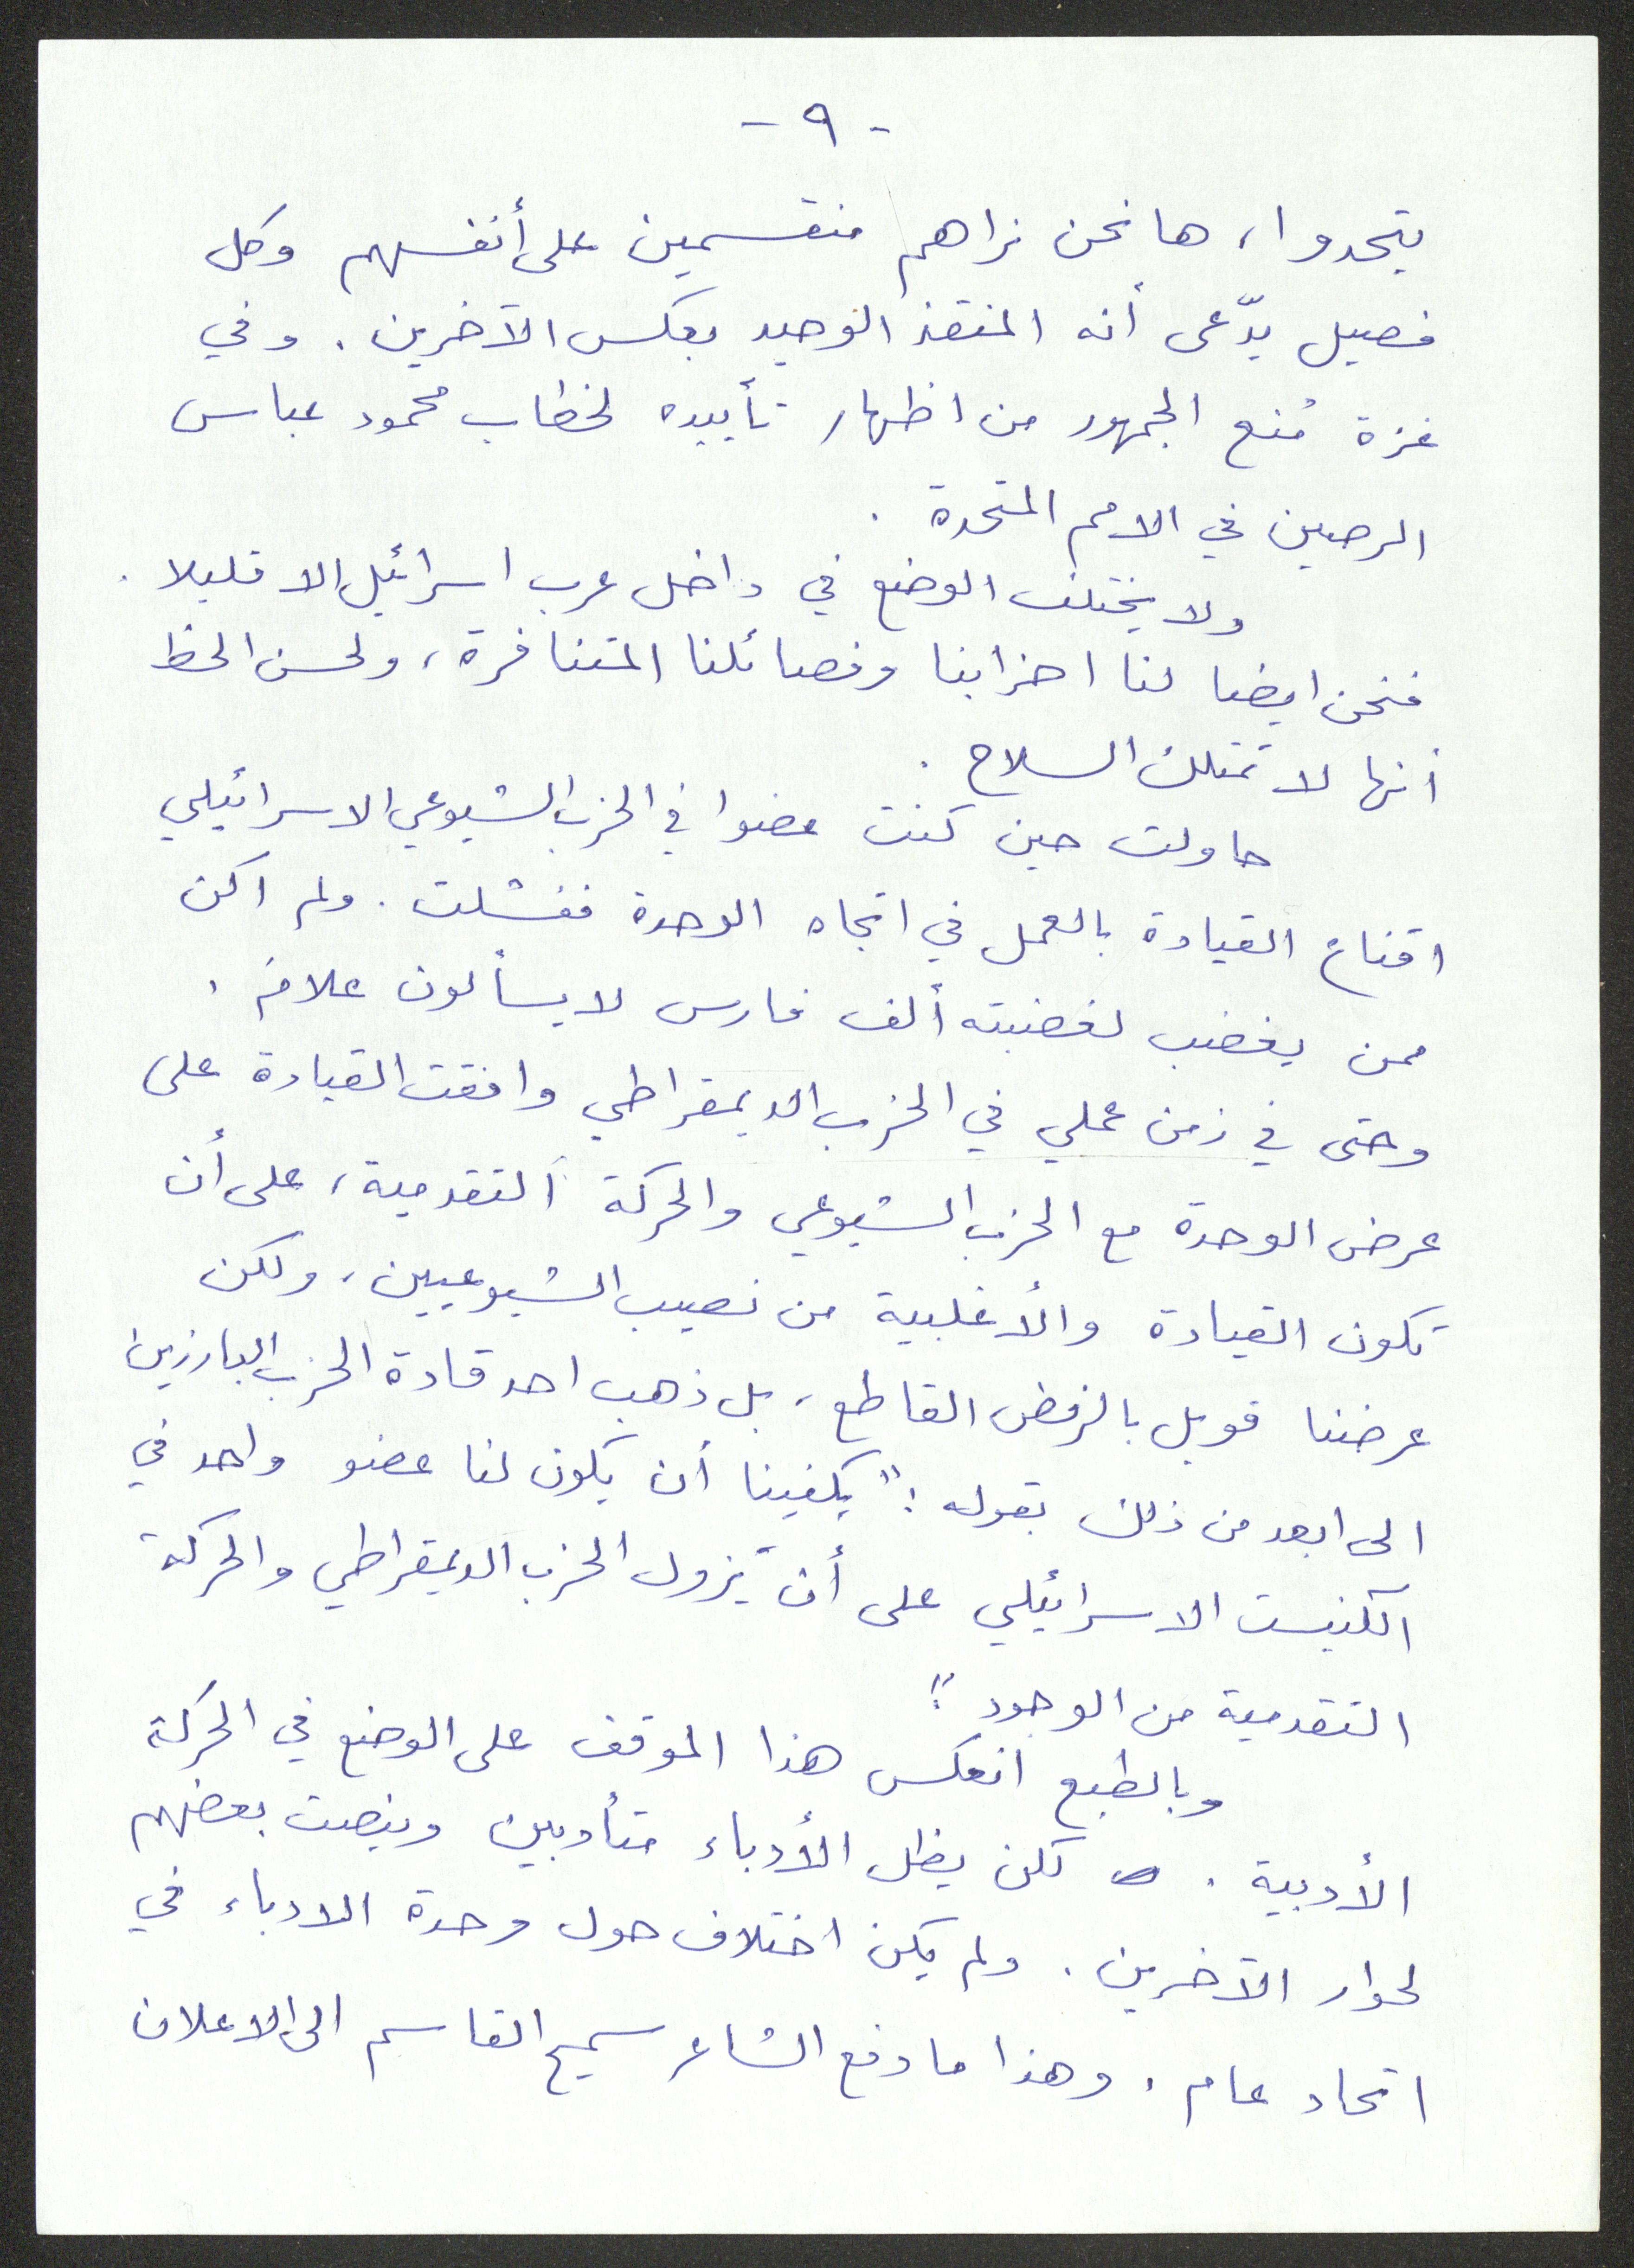 - ٩ -
يتحدوا، ها نحن نراهم منقسمين على أنفسهم وكل
فصيل يدّعى أنه المنقذ الوحيد بعكس الآخرين. وفي
غزة مُنع الجمهور من اظهار تأييده لخطاب محمود عباس
الرصين في الامم المتحدة.
ولا يختلف الوضع في داخل عرب اسرائيل الا قليلا.
فنحن ايضا لنا احزابنا وفصائلنا المتنافرة، ولحسن الحظ
أنها لا تمتلك السلاح.
حاولت حين كنت عضوا في الحزب الشيوعي الاسرائيلي
اقناع القيادة بالعمل في اتجاه الوحدة ففشلت. ولم اكن
ممن يغضب لغضبته ألف فارس لا يسألون علامَ.
وحتى في زمن عملي في الحزب الديمقراطي وافقت القيادة على
عرض الوحدة مع الحزب الشيوعي والحركة التقدمية، على أن
تكون القيادة والأغلبية من نصيب الشيوعيين، ولكن
عرضنا قوبل بالرفض القاطع، بل ذهب احد قادة الحزب البارزين
الى ابعد من ذلك بقوله: "يكفينا أن يكون لنا عضو واحد في
الكنيست الاسرائيلي على أن يزول الحزب الديمقراطي والحركة
التقدمية من الوجود"!
وبالطبع انعكس هذا الموقف على الوضع في الحركة
الأدبية. لكن يظل الأدباء متأدبين وينصت بعضهم
لحوار الآخرين. ولم يكن اختلاف حول وحدة الادباء في
اتحاد عام. وهذا ما دفع الشاعر سميح القاسم الى الاعلان